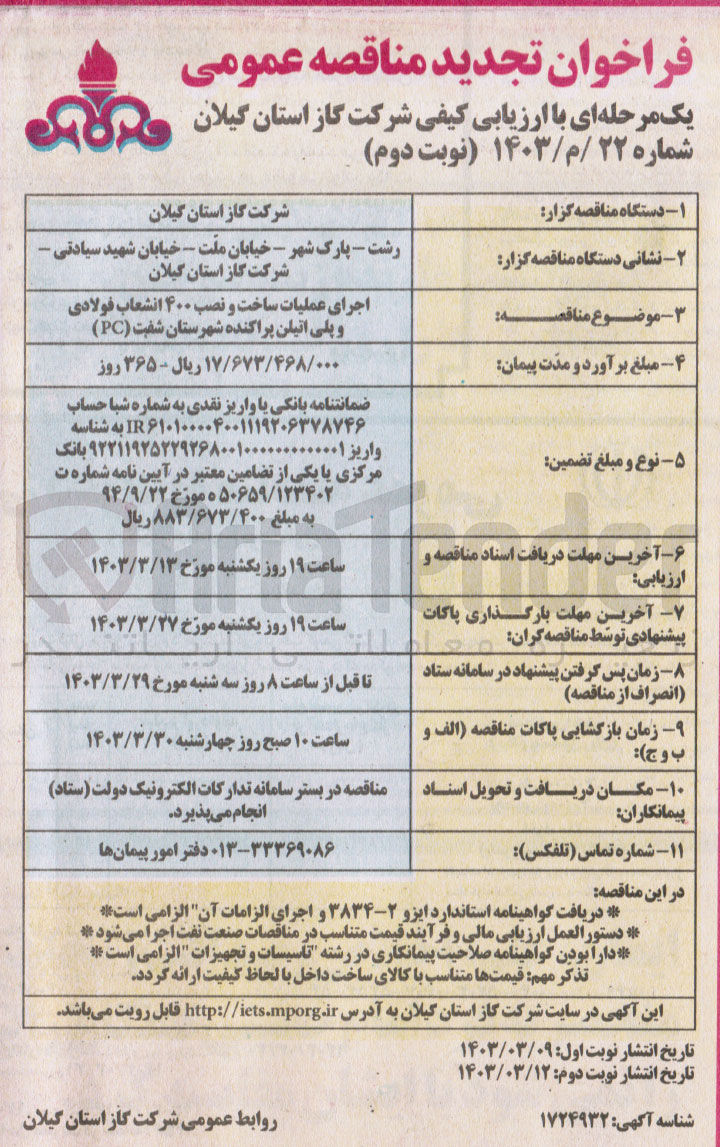 فراخوان تجدید مناقصه عمومی
یک‌مرحله‌ای با ارزیابی کیفی شرکت گاز استان گیلان
شماره ۲۲ /م/ ۱۴۰۳ (نوبت دوم)
۱- دستگاه مناقصه گزار:
شرکت گاز استان گیلان
۲- نشانی دستگاه مناقصه گزار:
رشت – پارک شهر – خیابان ملّت – خیابان شهید سیادتی –
شرکت گاز استان گیلان
۳- موضوع مناقصه:
اجرای عملیات ساخت و نصب ۴۰۰ انشعاب فولادی
و پلی اتیلن پراکنده شهرستان شفت (PC)
۴- مبلغ برآورد و مدّت پیمان:
۱۷/۶۷۳/۴۶۸/۰۰۰ ریال - ۳۶۵ روز
۵- نوع و مبلغ تضمین:
ضمانتنامه بانکی یا واریز نقدی به شماره شبا حساب
IR ۶۱۰۱۰۰۰۰۴۰۰۱۱۱۹۲۰۶۳۷۸۷۴۶ به شناسه
واریز ۹۲۲۱۱۹۲۵۲۲۹۲۶۸۰۰۱۰۰۰۰۰۰۰۰۰۰۰۰۱ بانک
مرکزی یا یکی از تضامین معتبر در آیین نامه شماره ت
۵۰۶۵۹/۱۲۳۴۰۲ ه مورّخ ۹۴/۹/۲۲
به مبلغ ۸۸۳/۶۷۳/۴۰۰ ریال
۶- آخرین مهلت دریافت اسناد مناقصه و
ارزیابی:
ساعت ۱۹ روز یکشنبه مورّخ ۱۴۰۳/۳/۱۳
۷- آخرین مهلت بارگذاری پاکات
پیشنهادی توسّط مناقصه گران:
ساعت ۱۹ روز یکشنبه مورّخ ۱۴۰۳/۳/۲۷
۸- زمان پس گرفتن پیشنهاد در سامانه ستاد
(انصراف از مناقصه)
تا قبل از ساعت ۸ روز سه شنبه مورخ ۱۴۰۳/۳/۲۹
۹- زمان بازگشایی پاکات مناقصه (الف و
ب و ج):
ساعت ۱۰ صبح روز چهارشنبه ۱۴۰۳/۳/۳۰
۱۰- مکان دریافت و تحویل اسناد
پیمانکاران:
مناقصه در بستر سامانه تدارکات الکترونیک دولت (ستاد)
انجام می‌پذیرد.
۱۱- شماره تماس (تلفکس):
۰۱۳-۳۳۳۶۹۰۸۶ دفتر امور پیمان‌ها
در این مناقصه:
* دریافت گواهینامه استاندارد ایزو ۲-۳۸۳۴ و اجرای الزامات آن" الزامی است*
* دستورالعمل ارزیابی مالی و فرآیند قیمت متناسب در مناقصات صنعت نفت اجرا می‌شود *
*دارا بودن گواهینامه صلاحیت پیمانکاری در رشته "تاسیسات و تجهیزات " الزامی است *
تذکر مهم: قیمت‌ها متناسب با کالای ساخت داخل با لحاظ کیفیت ارائه گردد.
این آگهی در سایت شرکت گاز استان گیلان به آدرس http://iets.mporg.ir قابل رویت می‌باشد.
تاریخ انتشار نوبت اول: ۱۴۰۳/۰۳/۰۹
تاریخ انتشار نوبت دوم: ۱۴۰۳/۰۳/۱۲
شناسه آگهی: ۱۷۲۴۹۳۲
روابط عمومی شرکت گاز استان گیلان
AriaTender